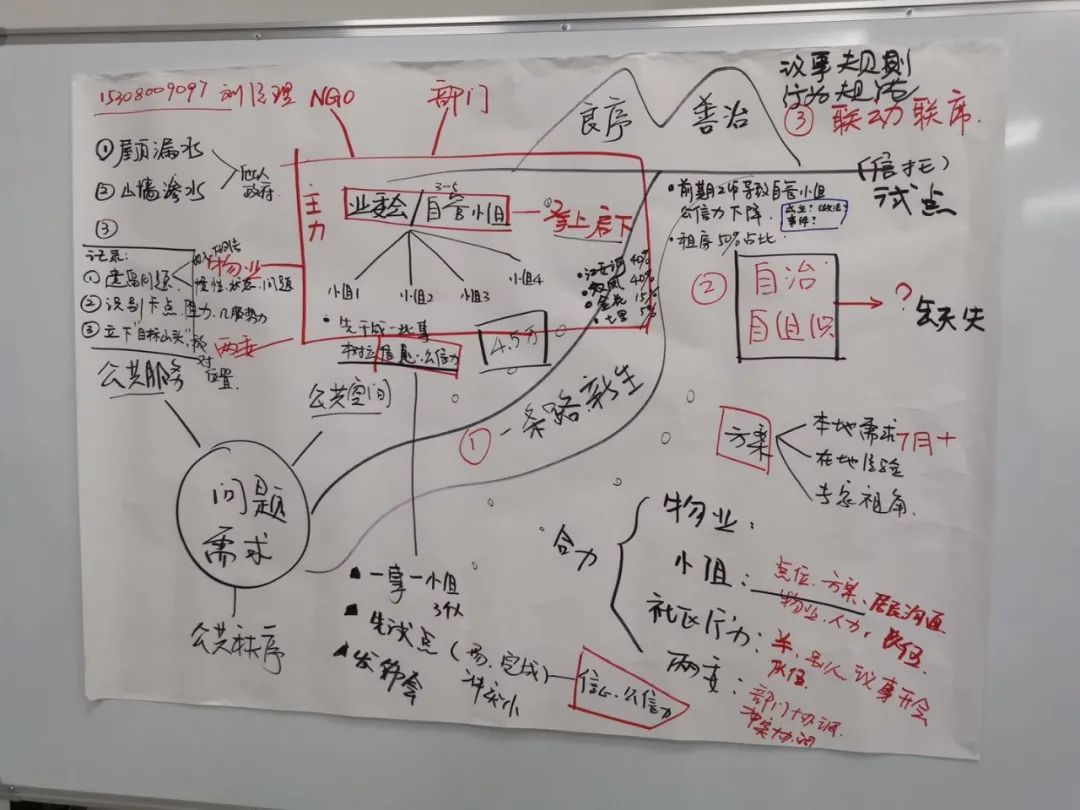 15308009097 刘经理
NGO
部门
①屋顶漏水
②山墙渗水
政府
③
记录：
①遗留问题
物业
惯性、状态、问题
②识别卡点、阻力、几股势力
③立下"目标山头"
两委
位置
主力
业委会/自管小组
3-5
承上启下
小组1
小组2
小组3
小组4
40%
40%
15%
5%
先干成一批事
树立信息、公信力
4.5万
良序
善治
议事规则
行为规范
③联动联席
(信托)
试点
前期工作导致自管小组
公信力下降
事件?
租房50%占比
②
自治
自组织
?
缺失
①一条路新生
公共服务
公共空间
问题
需求
公共秩序
方案
本地需求
7月+
在地经验
专家视角
合力
物业：
小组：点位、方案、居民沟通
物业、人力
社区行力：
议事开会
两委：部门协调
冲突协调
一事一小组
34人
先试点(易、完成)
冲突小
发布会
信心、公信力